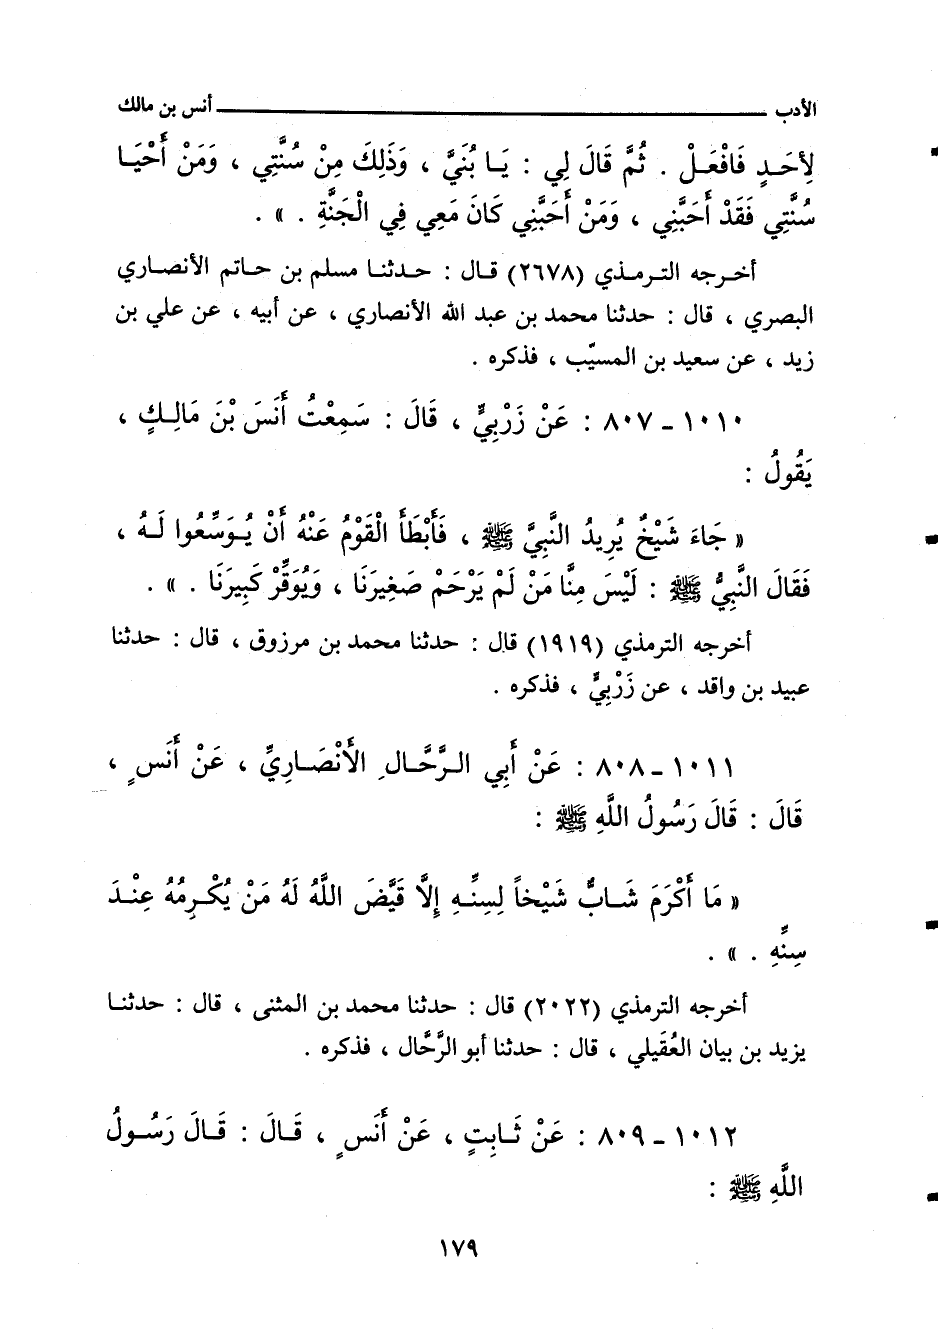 الأدب ــــــــــــــــــــ أنس بن مالك
لِأَحَدٍ فَافْعَلْ . ثُمَّ قَالَ لِي : يَا بُنَيَّ ، وَذَلِكَ مِنْ سُنَّتِي ، وَمَنْ أَحْيَا
سُنَّتِي فَقَدْ أَحَبَّنِي ، وَمَنْ أَحَبَّنِي كَانَ مَعِي فِي الْجَنَّةِ . » .
أخرجه الترمذي (٢٦٧٨) قال : حدثنا مسلم بن حاتم الأنصاري
البصري ، قال : حدثنا محمد بن عبد الله الأنصاري ، عن أبيه ، عن علي بن
زيد ، عن سعيد بن المسيّب ، فذكره .
١٠١٠ - ٨٠٧ : عَنْ زَرْبِيٍّ ، قَالَ : سَمِعْتُ أَنَسَ بْنَ مَالِكٍ ،
يَقُولُ :
« جَاءَ شَيْخٌ يُرِيدُ النَّبِيَّ ﷺ ، فَأَبْطَأَ الْقَوْمُ عَنْهُ أَنْ يُوَسِّعُوا لَهُ ،
فَقَالَ النَّبِيُّ ﷺ : لَيْسَ مِنَّا مَنْ لَمْ يَرْحَمْ صَغِيرَنَا ، وَيُوَقِّرْ كَبِيرَنَا . » .
أخرجه الترمذي (١٩١٩) قال : حدثنا محمد بن مرزوق ، قال : حدثنا
عبيد بن واقد ، عن زَرْبِيٍّ ، فذكره .
١٠١١ - ٨٠٨ : عَنْ أَبِي الرَّحَّالِ الأَنْصَارِيِّ ، عَنْ أَنَسٍ ،
قَالَ : قَالَ رَسُولُ اللَّهِ ﷺ :
« مَا أَكْرَمَ شَابٌّ شَيْخاً لِسِنِّهِ إِلَّا قَيَّضَ اللَّهُ لَهُ مَنْ يُكْرِمُهُ عِنْدَ
سِنِّهِ . » .
أخرجه الترمذي (٢٠٢٢) قال : حدثنا محمد بن المثنى ، قال : حدثنا
يزيد بن بيان العُقَيلي ، قال : حدثنا أبو الرَّحَّال ، فذكره .
١٠١٢ - ٨٠٩ : عَنْ ثَابِتٍ ، عَنْ أَنَسٍ ، قَالَ : قَالَ رَسُولُ
اللَّهِ ﷺ :
١٧٩